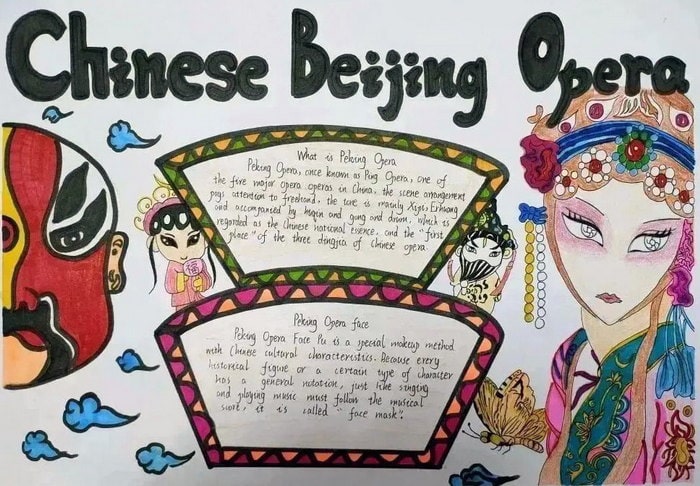 Chinese Beijing Opera
What is Peking Opera
Peking Opera, once known as Ping Opera, one of
the five major opera operas in China, the scene arrangement
pays attention to freehand, the tune is mainly Xipi, Erhuang
and accompanied by huqin and gong and drum, which is
regarded as the Chinese national essence. and the "first
place" of the three dingjia of Chinese opera.
Peking Opera face
Peking Opera Face Pu is a special makeup method
with Chinese cultural characteristics. Because every
historical figure or a certain type of character
has a general notation, just like singing
and playing music must follow the musical
it is called "face mask".